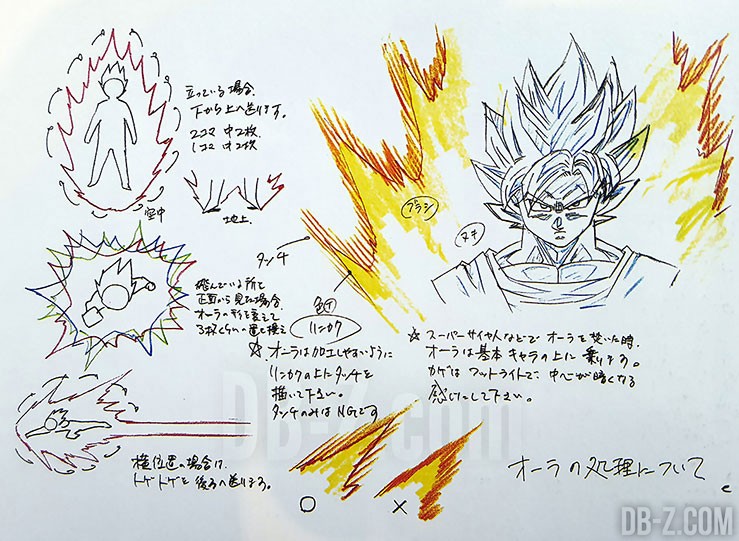 立っている場合、
下から上へ送ります。
2コマ 中2枚
1コマ 中2枚
空中
地上
ブラシ
ヌキ
タッチ
飛んでいる所を
正面から見た場合、
オーラの形を変えて
3枚くらい
色T
リンカク
☆ オーラは加工しやすいように
リンカクの上にタッチを
描いて下さい。
タッチのみはNGです
☆ スーパーサイヤ人などで オーラを焚いた時、
オーラは基本 キャラの上に 乗ります。
カゲは フットライトで、中心が暗くなる
感じにして下さい。
横位置の場合は、
トゲトゲを 後ろへ送ります。
○
×
オーラの処理について
c
DB-Z.com
DB-Z.COM